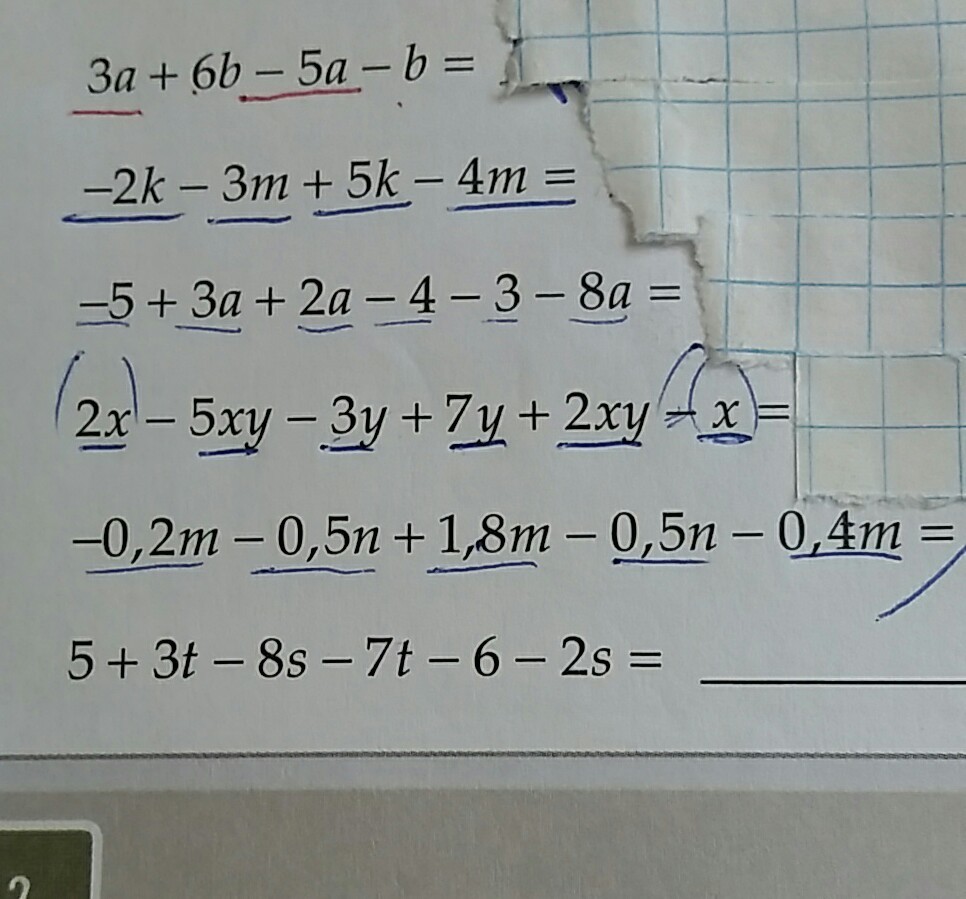 3a + 6b – 5a – b =
–2k – 3m + 5k – 4m =
–5 + 3a + 2a – 4 – 3 – 8a =
(2x) – 5xy – 3y + 7y + 2xy – (x) =
–0,2m – 0,5n + 1,8m – 0,5n – 0,4m =
5 + 3t – 8s – 7t – 6 – 2s =